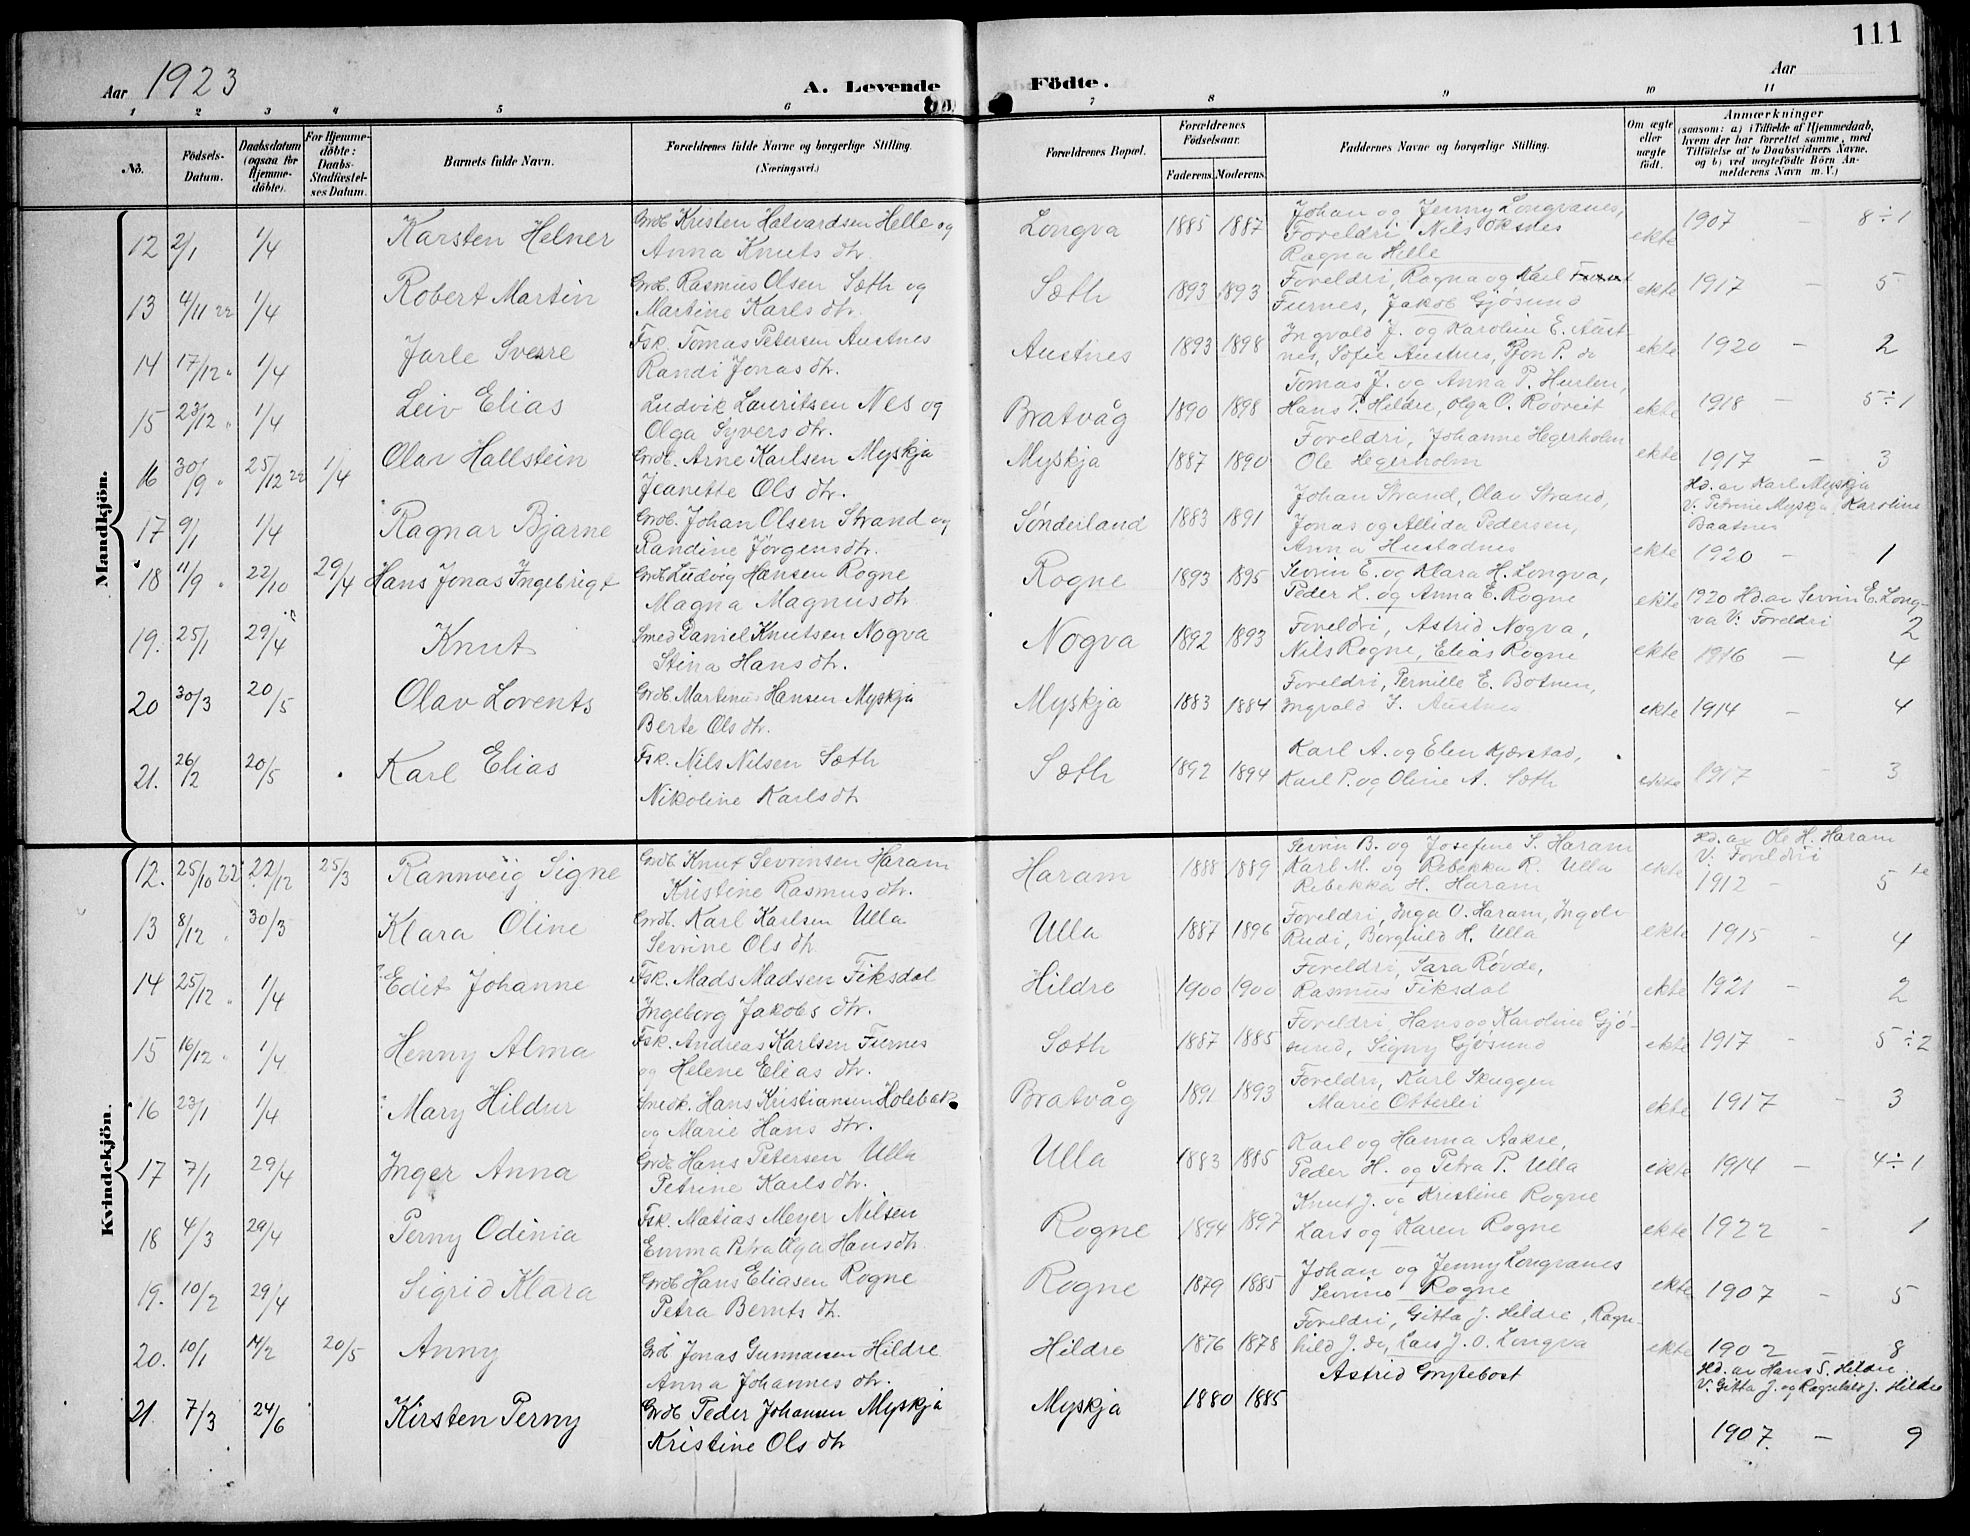 111
Aar 1923
A. Levende Födte.
Aar
1 2 3 4 5 6 7 8 9 10 11
No.
Födsels-Datum.
Daabsdatum (ogsaa for Hjemmedöbte).
For Hjemmedöbte: Daabs-Stadfæstelses Datum.
Barnets fulde Navn.
Forældrenes fulde Navne og borgerlige Stilling. (Næringsvei.)
Forældrenes Bopæl.
Forældrenes Födselsaar.
Faderens. Moderens.
Faddernes Navne og borgerlige Stilling.
Om ægte eller uægte födt.
Anmærkninger
(saasom: a) i Tilfælde af Hjemmedaab, hvem der har forrettet samme, med Tilföielse af to Daabsvidners Navne, og b) ved uægtefödte Börn Anmelderens Navn m. V.)
Mandkjön.
12 2/1 1/4 Karsten Helner Grdb Kristen Halvardsen Helle og Longva 1885 1887 Johan og Jenny Longvanes, ekte 1907 – 8÷1
Anna Knuts dtr. Foreldri Nils Oksnes
Ragna Helle
13 4/11 22 1/4 Robert Martin Grdb. Rasmus Olsen Sæth og Sæth 1893 1893 Foreldri, Ragna og Karl ekte 1917 – 5
Martine Karls dtr. Furnes, Jakob Gjøsund
14 17/12 " 1/4 Jarle Sverre Fsk. Tomas Petersen Austnes Austnes 1893 1898 Ingvald J. og Karoline E. Aust- ekte 1920 – 2
Randi Jonas dtr. nes, Sofie Austnes, P. do
15 23/12 " 1/4 Leiv Elias Ludvik Lauritsen Nes og Bratvåg 1890 1898 Tomas J. og Anna P. Hurlen, ekte 1918 – 5÷1
Olga Syvers dtr. Hans P. Hildre, Olga O.
16 30/9 " 25/12 22 1/4 Olav Hallstein Grdb. Arne Karlsen Myskja Myskja 1887 1890 Foreldri, Johanne Hegerholm ekte 1917 – 3
Jeanette Ols dtr. Ole Hegerholm Hd. av Karl Myskja
V: Petrine Myskja, Karoline
Baatnes
17 9/1 1/4 Ragnar Bjarne Grdb. Johan Olsen Strand og Sønderland 1883 1891 Johan Strand, Olav Strand, ekte 1920 – 1
Randine Jørgens dtr. Jonas og Allida Pedersen,
Anna Hustadnes
18 11/9 " 22/10 29/4 Hans Jonas Ingebrigt Grdb Ludvig Hansen Rogne Rogne 1893 1895 Sevrin E. og Klara H. Longva, ekte 1920 Hd. av Sevrin E. Long-
Magna Magnus dtr Peder L. og Anna E. Rogne va V: Foreldri 2
19. 25/1 29/4 Knut Smed Daniel Knutsen Nogva Nogva 1892 1893 Foreldri, Astrid Nogva, ekte 1916 – 4
Stina Hans dtr. Nils Rogne, Elias Rogne
20 30/3 20/5 Olav Lorents Grdb. Martinus Hansen Myskja Myskja 1883 1884 Foreldri, Pernille E. Botnen, ekte 1914 – 4
Berte Ols dtr. Ingvald J. Austnes
21. 26/2 20/5 Karl Elias Fsk. Nils Nilsen Sæth Sæth 1892 1894 Karl A. og Elen Kjærstad, ekte 1917 – 3
Nikoline Karls dtr Karl P. og Oline A. Sæth
Kvindekjön.
12. 25/10 22 22/12 25/3 Rannveig Signe Grdb. Knut Sevrinsen Haram Haram 1888 1889 Sevrin B. og Josefine S. Haram ekte Hd. av Ole H. Haram
Kristine Rasmus dtr. Karl M. og Rebekka R. Ulla V: Foreldri
Rebekka H. Haram 1912 – 5te
13 8/12 " 30/3 Klara Oline Grdb. Karl Karlsen Ulla Ulla 1887 1896 Foreldri, Inga O. Haram, Ingolv ekte 1915 – 4
Sevrine Ols dtr Rudi, Borghild H. Ulla
14 25/12 " 1/4 Edit Johanne Fsk. Mads Madsen Fiksdal Hildre 1900 1900 Foreldri, Sara Røvde, ekte 1921 – 2
Ingeborg Jakobs dtr. Rasmus Fiksdal
15 16/12 " 1/4 Henny Alma Fsk. Andreas Karlsen Furnes Sæth 1887 1885 Foreldri, Hans og Karoline Gjø- ekte 1917 – 5÷2
og Helene Elias dtr. sund, Signy Gjøsund
16 23/1 1/4 Mary Hildur Smedk. Hans Kristiansen Holsbak Bratvåg 1891 1893 Foreldri, Karl Skuggen ekte 1917 – 3
og Marie Hans dtr. Marie Otterlei
17 7/1 29/4 Inger Anna Grdb Hans Petersen Ulla Ulla 1883 1885 Karl og Hanna Aakre, ekte 1914 – 4÷1
Petrine Karls dtr. Peder H. og Petra P. Ulla
18 4/3 29/4 Perny Odinia Fsk. Matias Meyer Nilsen Rogne 1894 1897 Knut J. og Kristine Rogne ekte 1922 – 1
Emma Petra Olga Hans dtr. Lars og Karen Rogne
19. 10/2 29/4 Sigrid Klara Grdb Hans Eliasen Rogne Rogne 1879 1885 Johan og Jenny Longvanes ekte 1907 – 5
Petra Bernts dtr. Sevrine Rogne
20. 10/1 14/2 20/5 Anny Grdb Jonas Gunnarsen Hildre Hildre 1876 1878 Foreldri, Gitta J. Hildre, Ragn- ekte 1902 – 8
Anna Johannes dtr. hild J. do, Lars J. O. Longva Hd. av Hans S. Hildre.
Astrid Gryteböst V: Gitta J. og Ragnhild J. Hildre
21. 7/3 24/6 Kirsten Perny Grdb Peder Johansen Myskja Myskja 1880 1885
Kristine Ols dtr 1907. – 9